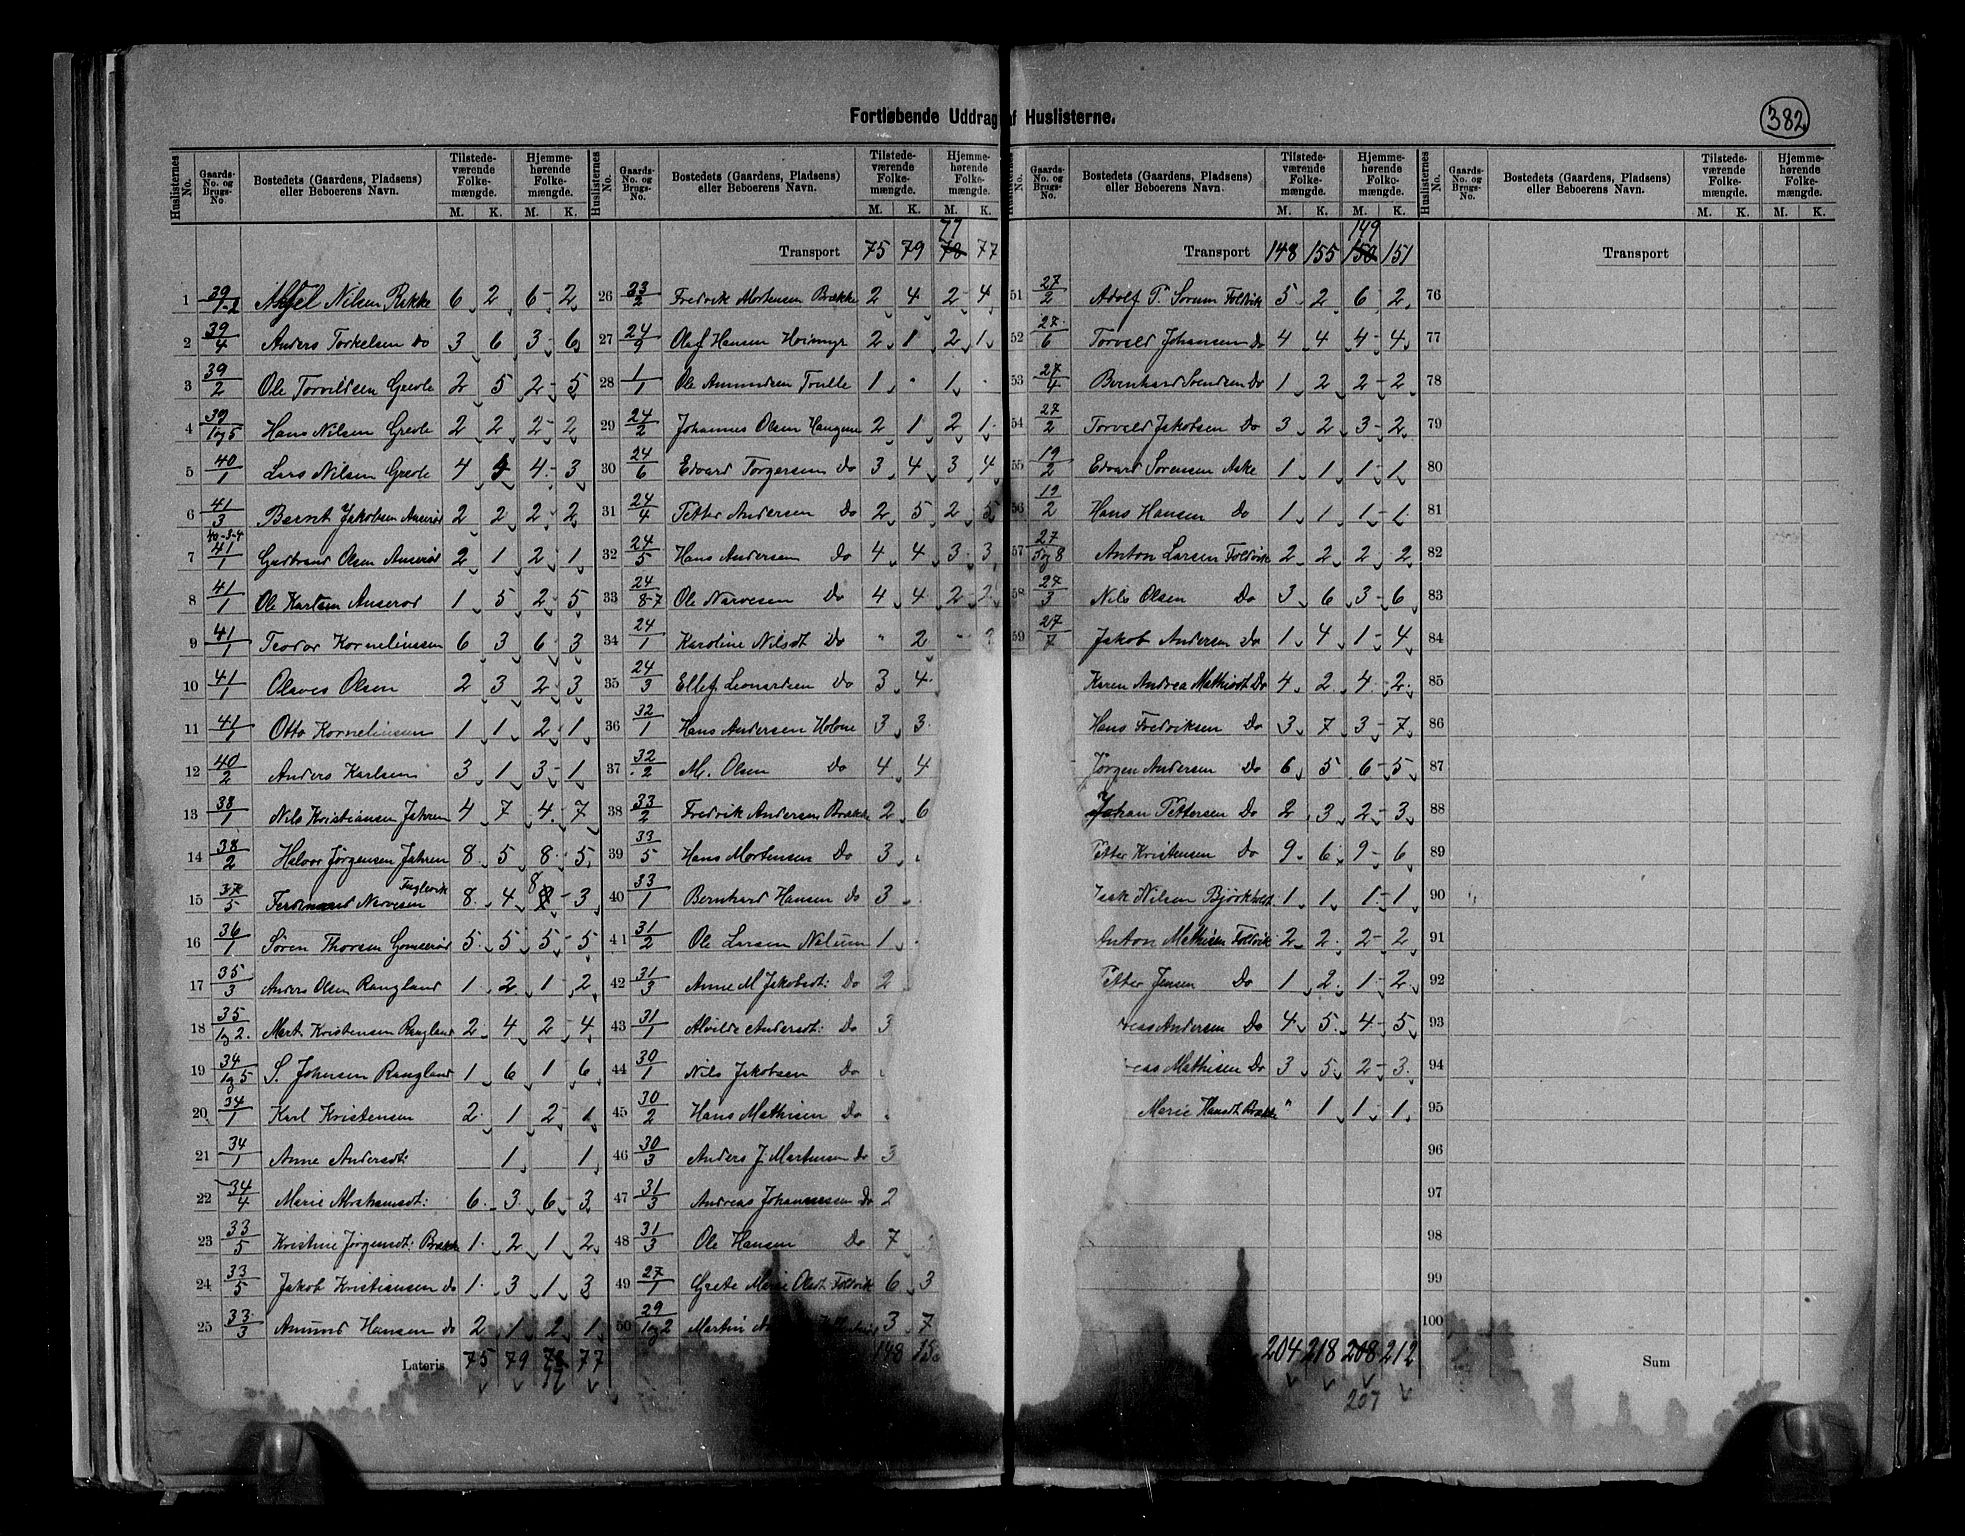 Fortløbende Uddrag af Huslisterne.
382
Huslisternes No. Gaards-No. og Brugs-No. Bostedets (Gaardens, Pladsens) eller Beboerens Navn. Tilstedeværende Folkemængde. M. K. Hjemmehørende Folkemængde. M. K.
1 39/1-2 Nilsen Række 6 2 6 2
2 39/4 Anders Torkelsen do 3 6 3 6
3 39/2 Ole Torvildsen Grevle 2 5 2 5
4 39/1og5 Hans Nilsen Grevle 2 2 2 2
5 40/1 Lars Nilsen Grevle 4 4 4 3
6 41/3 Bernt Jakobsen Anserød 2 2 2 2
7 40-3-4 41/1 Gudbrand Olsen Anserød 2 1 2 1
8 41/1 Ole Karlsen Anserød 1 5 2 5
9 41/1 Teodor Kornelinssen 6 3 6 3
10 41/1 Olaves Olsen 2 3 2 3
11 41/1 Otto Kornelinsen 1 1 2 1
12 40/2 Anders Karlsen 3 1 3 1
13 38/1 Nils Kristiansen Jahren 4 7 4 7
14 38/2 Halvor Jørgensen Jahren 8 5 8 5
15 37/5 Ferdinand Narvesen Fuglevik 8 4 8 3
16 36/1 Søren Thorsen Gomserød 5 5 5 5
17 35/3 Anders Olsen Rangland 1 2 1 2
18 35/1og2. Mart. Kristensen Rangland 2 4 2 4
19 34/1og5 S. Johnsen Rangland 1 6 1 6
20 34/1 Karl Kristensen 2 1 2 1
21 34/1 Anne Andersdt: 1 1
22 34/4 Marie Abrahamsdt: 6 3 6 3
23 33/5 Kristine Jørgensdt: Brække 1 2 1 2
24 33/5 Jakob Kristiansen do 1 3 1 3
25 33/3 Amund Hansen do 2 1 2 1
Lateris 75 79 78 77
77
Huslisternes No. Gaards-No. og Brugs-No. Bostedets (Gaardens, Pladsens) eller Beboerens Navn. Tilstedeværende Folkemængde. M. K. Hjemmehørende Folkemængde. M. K.
77
Transport 75 79 78 77
26 33/2 Fredrik Mortensen Brække 2 4 2 4
27 24/9 Olaf Hansen Hoimyr 2 1 2 1
28 1/1 Ole Amundsen Tralle 1 " 1 "
29 24/2 Johannes Olsen Haugene 2 1 2 1
30 24/6 Edvard Torgersen Do 3 4 3 4
31 24/4 Petter Andersen Do 2 5 2 5
32 24/5 Hans Andersen Do 4 4 3 3
33 24/87 Ole Narvesen Do 4 4 2 2
34 24/1 Karoline Nilsdt Do " 2 "
35 24/3 Ellef Leonardsen Do 3 4
36 32/1 Hans Andersen Holone 3 3
37 32/2 M. Olsen Do 4 4
38 33/2 Fredrik Andersen Brække 2 6
39 33/5 Hans Mortensen Do 3
40 33/1 Bernhard Hansen Do 3
41 31/2 Ole Larsen Nalum 1
42 31/3 Anne M Jakobsdt: Do 2
43 31/1 Alvilde Andersdt: Do 3
44 30/1 Nils Jakobsen Do
45 30/2 Hans Mathisen Do
46 30/3 Anders J Martinsen Do 3
47 31/3 Andreas Johannessen Do 2
48 31/3 Ole Hansen Do 7
49 27/1 Grete Marie Olsdt Foldvik 6 3
50 29/1og2 Martin 3 7
148
Huslisternes No. Gaards-No. og Brugs-No. Bostedets (Gaardens, Pladsens) eller Beboerens Navn. Tilstedeværende Folkemængde. M. K. Hjemmehørende Folkemængde. M. K.
149
Transport 148 155 150 151
51 27/2 Adolf P. Sorum Foldvik 5 2 6 2
52 27/6 Torvald Johansen Do 4 4 4 4
53 27/4 Bernhard Svendsen Do 1 2 2 2
54 27/2 Torvald Jakobsen Do 3 2 3 2
55 19/2 Edvard Sorensen Aske 1 1 1 1
56 19/2 Hans Hansen Do 1 1 1 1
57 27/5og8 Anton Larsen Foldvik 2 2 2 2
58 27/3 Nils Olsen Do 3 6 3 6
59 27/7 Jakob Andersen Do 1 4 1 4
Karen Andrea Mathisdt Do 4 2 4 2
Hans Fredriksen Do 3 7 3 7
Jørgen Andersen Do 6 5 6 5
Johan Pettersen Do 2 3 2 3
Petter Kristensen Do 9 6 9 6
Nilsen Bjørkholt 1 1 1 1
Anton Mathisen Foldvik 2 2 2 2
Petter Jensen Do 1 2 1 2
reas Andersen Do 4 5 4 5
eas Mathisen Do 3 5 2 3
Marie Hansdt Brække " 1 1 1
204 218 208 212
207
Huslisternes No. Gaards-No. og Brugs-No. Bostedets (Gaardens, Pladsens) eller Beboerens Navn. Tilstedeværende Folkemængde. M. K. Hjemmehørende Folkemængde. M. K.
Transport
76
77
78
79
80
81
82
83
84
85
86
87
88
89
90
91
92
93
94
95
96
97
98
99
100
Sum